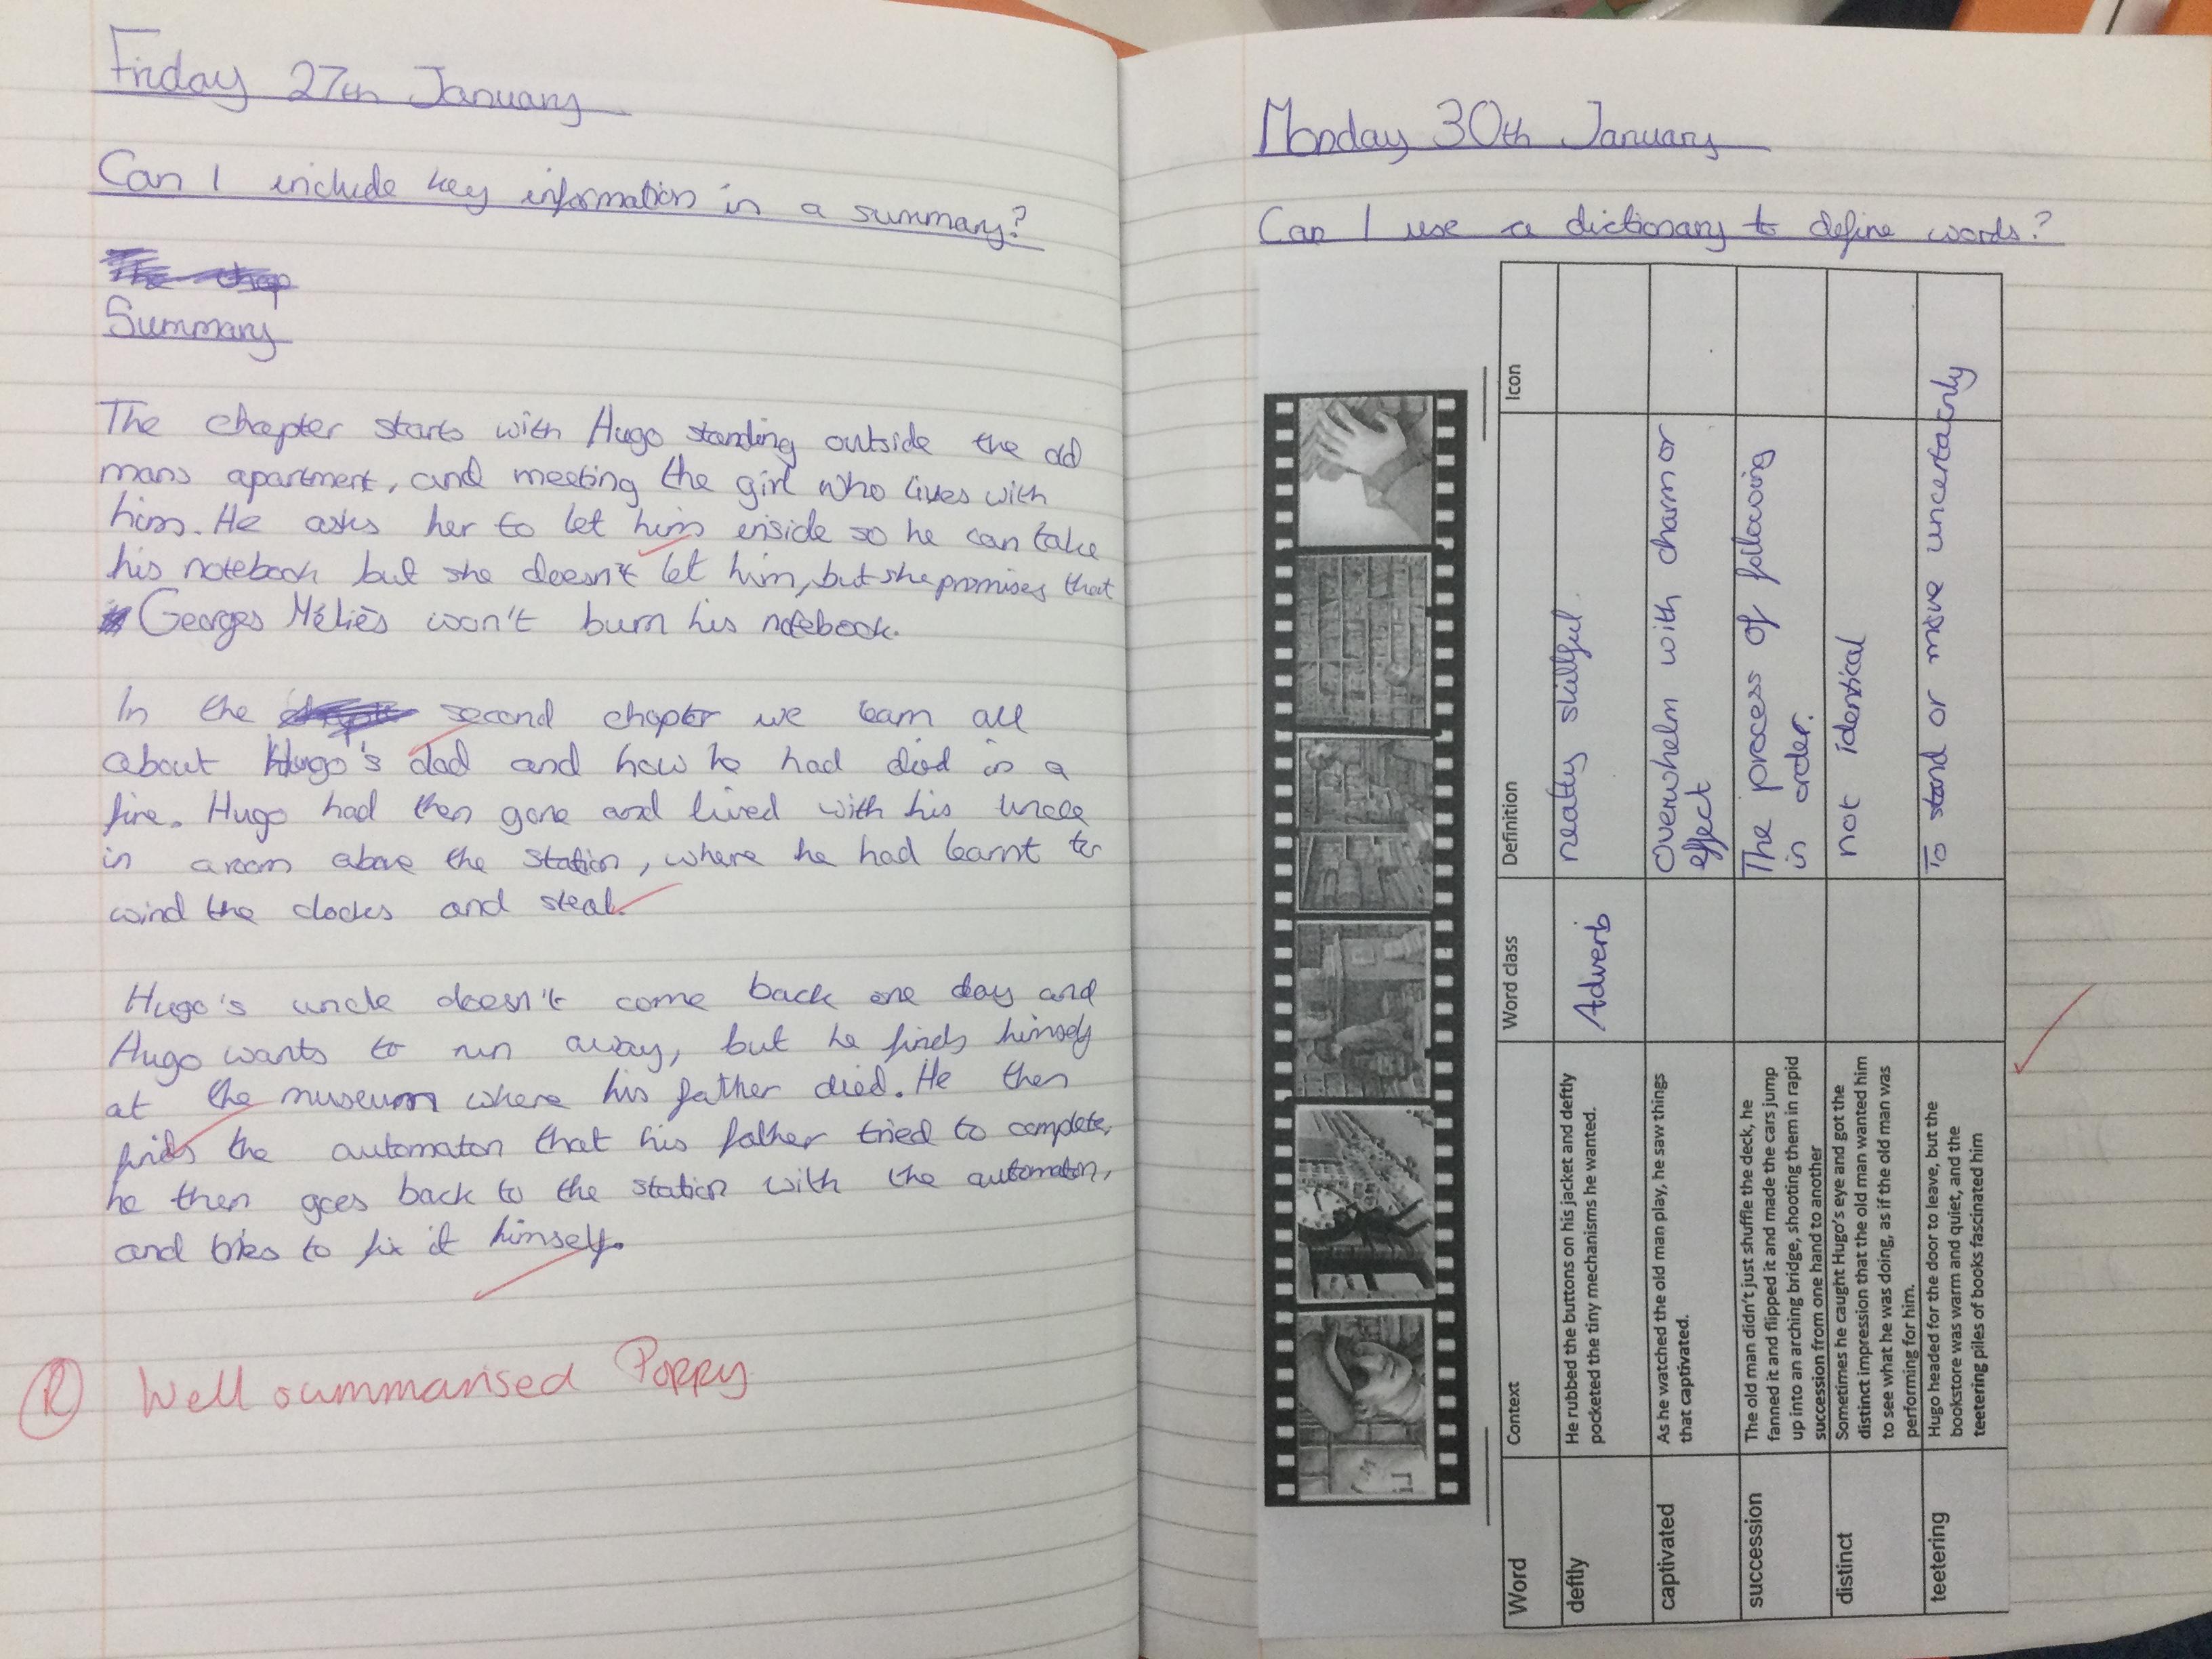 Friday 27th January
Can I include key information in a summary?
The chap
Summary
The chapter starts with Hugo standing outside the old
mans apartment, and meeting the girl who lives with
him. He asks her to let him inside so he can take
his notebook but she doesn't let him, but she promises that
Georges Méliès won't burn his notebook.
In the second chapter we learn all
about Hugo's dad and how he had died in a
fire. Hugo had then gone and lived with his uncle
in a room above the station, where he had learnt to
wind the clocks and steal.
Hugo's uncle doesn't come back one day and
Hugo wants to run away, but he finds himself
at the museum where his father died. He then
finds the automaton that his father tried to complete,
he then goes back to the station with the automaton,
and tries to fix it himself.
R Well summarised Poppy
Monday 30th January
Can I use a dictionary to define words?
Word Context Word class Definition Icon
deftly
He rubbed the buttons on his jacket and deftly
pocketed the tiny mechanisms he wanted.
Adverb
neatly skillful.
captivated
As he watched the old man play, he saw things
that captivated.
Overwhelm with charm or
effect
succession
The old man didn't just shuffle the deck, he
fanned it and flipped it and made the cars jump
up into an arching bridge, shooting them in rapid
succession from one hand to another
The process of following
in order.
distinct
Sometimes he caught Hugo's eye and got the
distinct impression that the old man wanted him
to see what he was doing, as if the old man was
performing for him.
not identical
teetering
Hugo headed for the door to leave, but the
bookstore was warm and quiet, and the
teetering piles of books fascinated him
To stand or move uncertainly